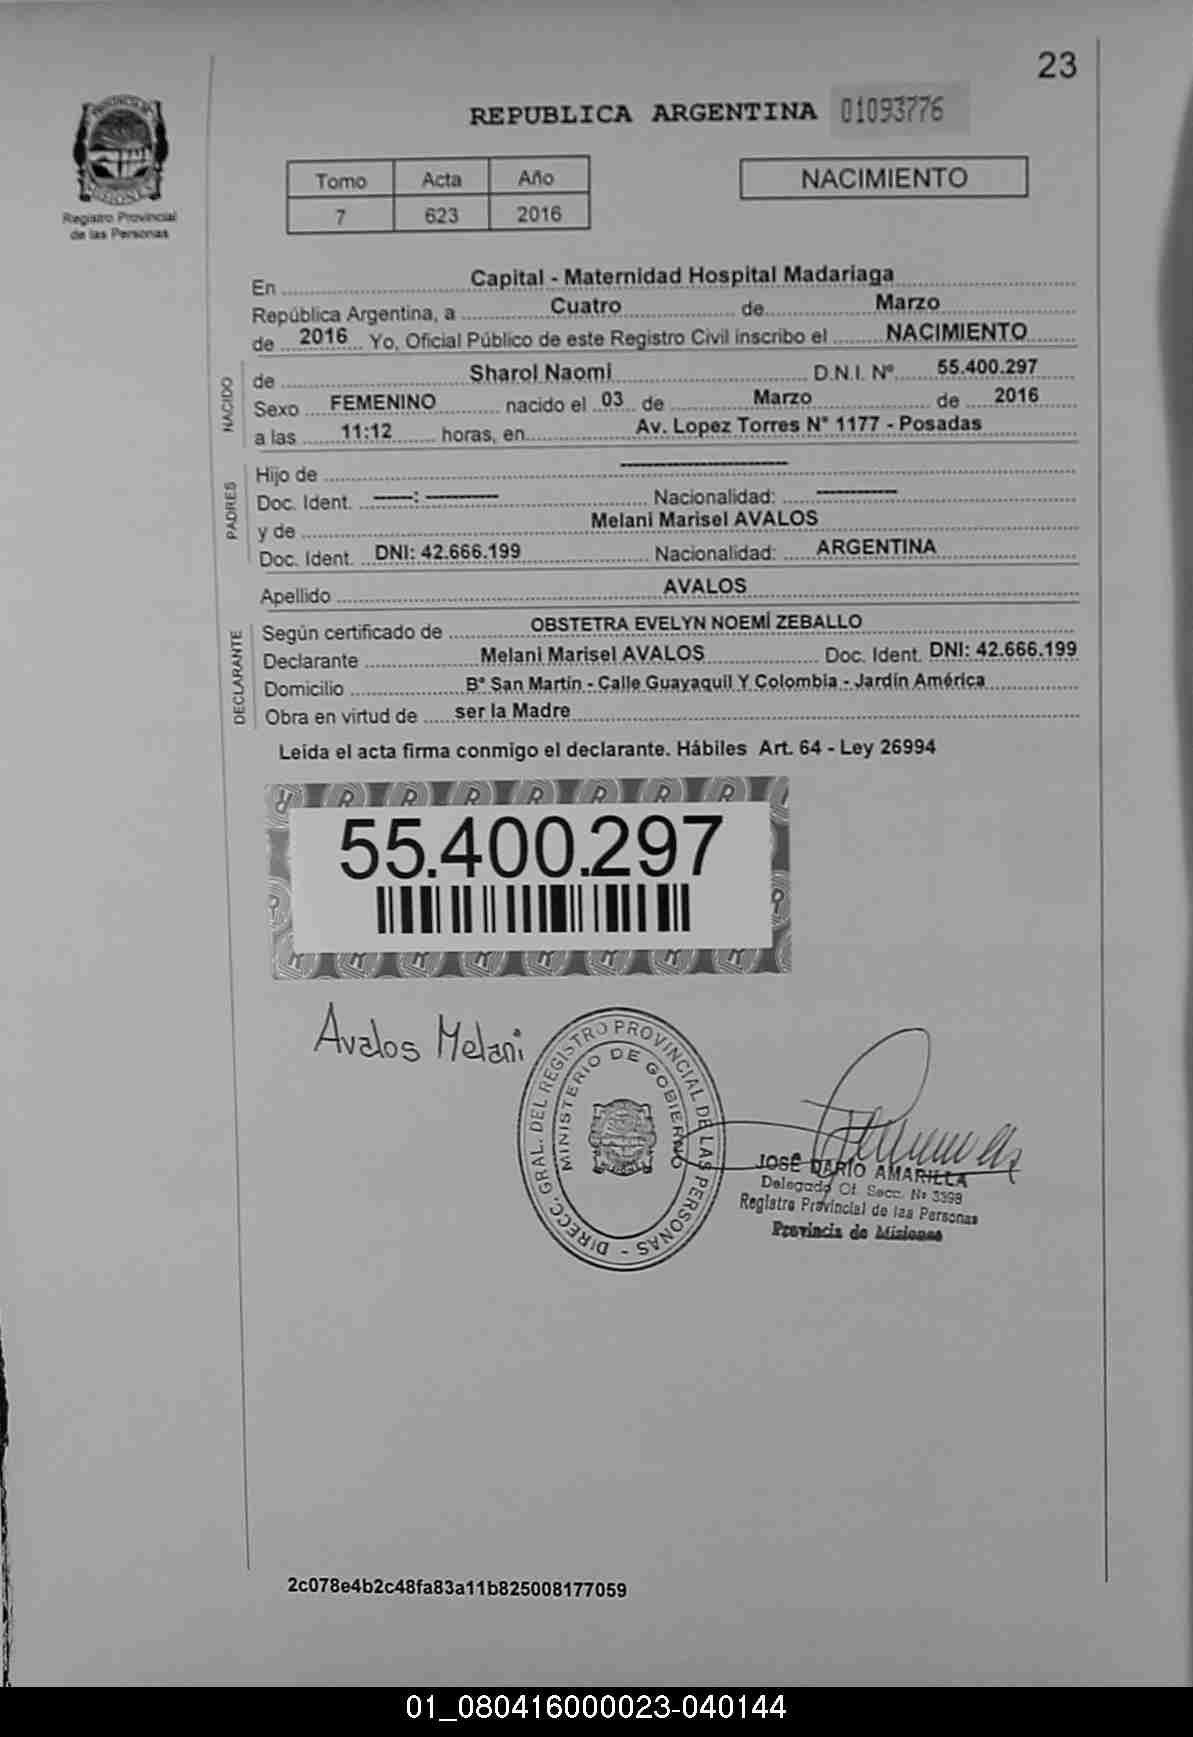 23
REPUBLICA ARGENTINA 01093776
Registro Provincial
de las Personas
Tomo Acta Año
7 623 2016
NACIMIENTO
En Capital - Maternidad Hospital Madariaga
República Argentina, a Cuatro de Marzo
de 2016 Yo, Oficial Público de este Registro Civil inscribo el NACIMIENTO
NACIDO
de Sharol Naomi D.N.I. Nº 55.400.297
Sexo FEMENINO nacido el 03 de Marzo de 2016
a las 11:12 horas, en Av. Lopez Torres N° 1177 - Posadas
PADRES
Hijo de ----------
Doc. Ident. ----: -------- Nacionalidad: --------
y de Melani Marisel AVALOS
Doc. Ident. DNI: 42.666.199 Nacionalidad: ARGENTINA
Apellido AVALOS
DECLARANTE
Según certificado de OBSTETRA EVELYN NOEMÍ ZEBALLO
Declarante Melani Marisel AVALOS Doc. Ident. DNI: 42.666.199
Domicilio B° San Martín - Calle Guayaquil Y Colombia - Jardín América
Obra en virtud de ser la Madre
Leída el acta firma conmigo el declarante. Hábiles Art. 64 - Ley 26994
55.400.297
Avalos Melani
DIRECC. GRAL. DEL REGISTRO PROVINCIAL DE LAS PERSONAS -
MINISTERIO DE GOBIERNO
JOSÉ DARIO AMARILLA
Delegado Of. Secc. Nº 3398
Registro Provincial de las Personas
Provincia de Misiones
2c078e4b2c48fa83a11b825008177059
01_080416000023-040144